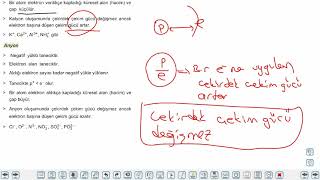 Bir atom elektron verdikçe kapladığı küresel alan (hacim) ve
çap küçülür.
Katyon oluşumunda çekirdek çekim gücü değişmez ancak
elektron başına düşen çekim gücü artar.
Anyon
Negatif yüklü taneciktir.
Elektron almış taneciktir.
Aldığı elektron sayısı kadar negatif yükle yüklenir.
Bir atom elektron aldıkça kapladığı küresel alan (hacim) ve
çap büyür.
Anyon oluşumunda çekirdek çekim gücü değişmez ancak
elektron başına düşen çekim gücü azalır.
P
P
e
= Bir e ne uygulanan
çekirdek çekim gücü
artar
Çekirdek çekim gücü
değişmez